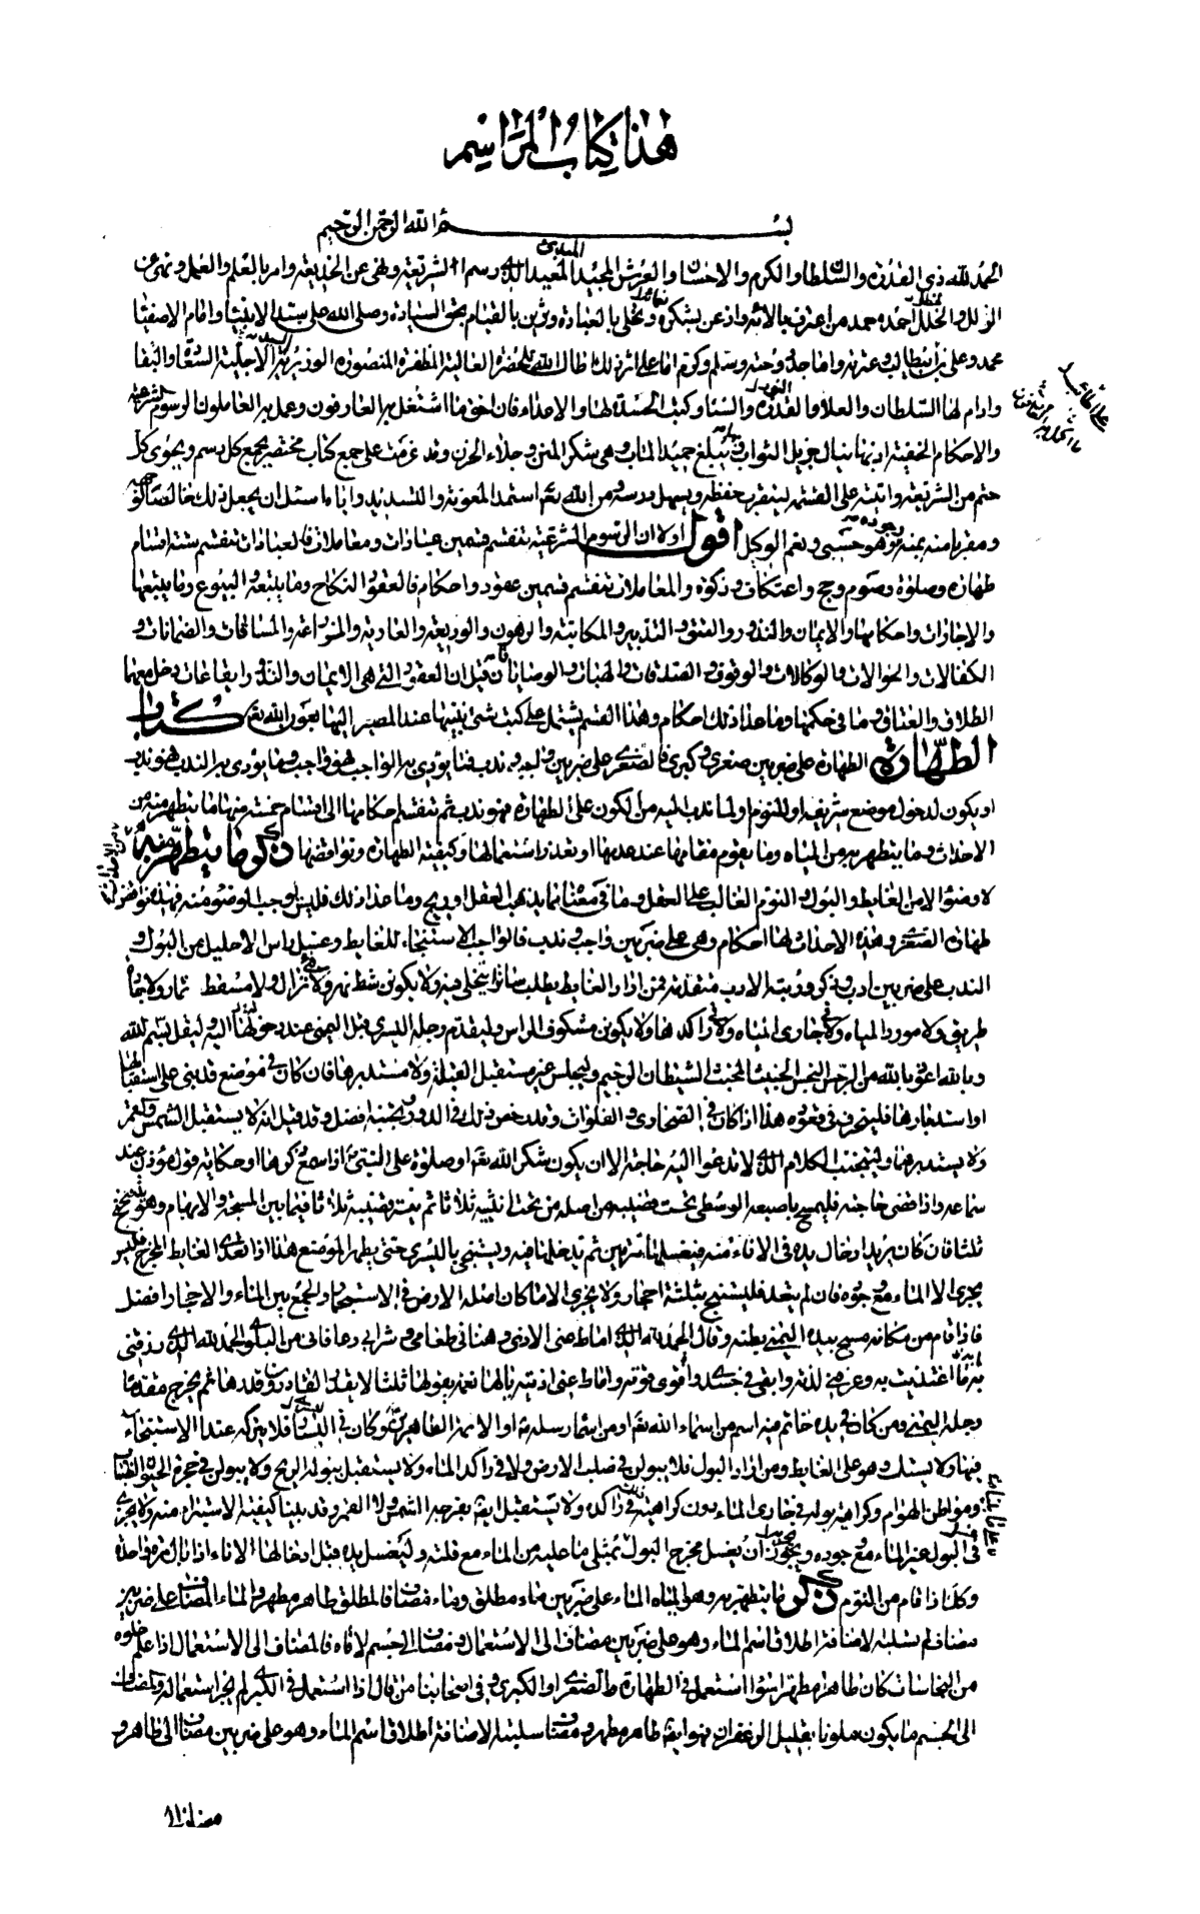 هذا كتاب المراسم
بسم الله الرحمن الرحيم
الحمد لله ذي القدرة والسلطان والكرم والاحسان والعرش المجيد المبدئ المعيد الذي رسم الشريعة ونهى عن الخديعة وامر بالعلم والعمل ونهى عن
الزلل والخلل احمده حمد من اعترف بالائه واذعن بشكره وتحلى بالعبادة وثوق بالقيام بحق السيادة وصلى الله على سيد الانبياء وامام الاصفياء
محمد وعلى بن ابيطالب وعترته وسلم وكرم اما على اثر ذلك اطال الله الحضرة العالية المظفرة المنصورة الوزيرية الاجلية
وادام لها السلطان والعلاء والقدرة والسناء وكبت الحسدة لها والاعداء فان احق ما اشتغل به العارفون وعمل به العاملون الرسوم الشرعية
والاحكام الحنفية اذ بها ينال جزيل الثواب ويبلغ حميد المآب وهى شكر المنن وجلاء الحزن وقد عزمت على جمع كتاب مختصر يجمع كل رسم ويحوى كل
حتم من الشريعة وابنيه على القسمة ليقرب حفظه ويسهل درسه ومن الله تعم استمد المعونة والتسديد واياه اسئل ان يجعل ذلك خالصا
ومقربا منه بمنه وجوده وهو حسبى ونعم الوكيل اقول اولا ان الرسوم الشرعية تنقسم قسمين عبادات ومعاملات فالعبادات تنقسم ستة اقسام
طهارة وصلوة وصوم وحج واعتكاف وزكوة والمعاملات تنقسم قسمين عقود واحكام فالعقود النكاح وما يتبعه والبيوع وما يتبعها
والاجارات واحكامها والايمان والنذور والعتق والتدبير والمكاتبة والرهون والوديعة والعارية والمزارعة والمساقات والضمانات و
الكفالات والحوالات والوكالات والوقوف والصدقات والهبات والوصايا فان قيل ان العقود التي هى الايمان والنذور ايقاعات دخل معها
الطلاق والعتاق وما في حكمها وما عدا ذلك احكام وهذا القسم يشتمل على كتب شتى نبينها عند المصير اليها بعون الله تعم كتاب
الطهارة الطهارة على ضربين صغرى وكبرى فالصغرى على ضربين واجب وندب فما يؤدى به الواجب فهو واجب وما يؤدى به الندب فهو ندب
او يكون لدخول موضع شريف او للنوم ولما ندب اليه من الكون على الطهارة فهو ندب ثم تنقسم احكامها الى اقسام خمسة منها ما يتطهر منه من
الاحداث وما يتطهر به من المياه وما يقوم مقامها عند عدمها او تعذر استعمالها وكيفية الطهارة ونواقضها ذكر ما يتطهر منه
لا وضوء الا من الغايط والبول والنوم الغالب على العقل وما في معناه مما يذهب العقل او ريح وما عدا ذلك فليس يوجب الوضوء منه فهذه نواقض
طهارة الصغرى وهذه الاحداث لها احكام وهى على ضربين واجب وندب فالواجب الاستنجاء للغايط وغسل راس الاحليل من البول و
الندب على ضربين ادب وذكر ورتبة الادب متقدمة فمن اراد الغايط يطلب ساترا يتخلى فيه ولا يكون شط نهر ولا في نزال ولا مسقط ثمار ولا جادة
طريق ولا مورد المياه ولا جارى المياه ولا راكدها ولا يكون مكشوف الراس وليقدم رجله اليسرى قبل اليمنى عند دخولها اليه وليقل بسم الله
وبالله اعوذ بالله من الرجس النجس الخبيث المخبث الشيطان الرجيم وليجلس غير مستقبل القبلة ولا مستدبرها فان كان في موضع قد بنى على استقبالها
او استدبارها فلينحرف في قعوده هذا اذا كان في الصحارى والفلوات وقد رخص ذلك في الدور وتجنبه افضل وقد قيل انه لا يستقبل الشمس والقمر
ولا يستدبرهما وليتجنب الكلام الذي لا تدعوا اليه حاجة الا ان يكون شكر الله تعم او صلوة على النبى اذا سمع ذكرها او حكاية قول مؤذن عند
سماعه واذا قضى حاجته فليمسح باصبعه الوسطى تحت قضيبه من اصله من تحت انثييه ثلاثا ثم ينتر قضيبه ثلاثا فيما بين المسبحة والابهام وهو يتنحنح
ثلثا فان كان يريد ادخال يده في الاناء منه فيغسلها مرتين ثم يدخلها فيه ويستنجى باليسرى حتى يطهر الموضع هذا اذا تعدى الغايط المخرج فليس
يجزى الا الماء مع وجوده فان لم يتعد فليستنج بثلثة احجار ولا يجزى الا ما كان اصله الارض في الاستجمار والجمع بين الماء والاحجار افضل
فاذا قام من مكانه مسح بيده اليمنى بطنه وقال الحمد لله الذي اماط عنى الاذى وهنانى طعامى وشرابى وعافانى من البلوى الحمد لله الذي رزقنى
ما اغتذيت به وعرفنى لذته وابقى في جسدى قوته واماط عنى اذيته يالها نعمة يقولها ثلثا لا يقدر القادرون قدرها ثم يخرج مقدما
رجله اليمنى ومن كان في يده خاتم فيه اسم من اسماء الله تعم او من اسماء رسله او الائمة الطاهرين وكان في اليسار فلا يتركه عند الاستنجاء
فيها ولا يستك وهو على الغايط ومن اراد البول فلا يبولن في صلب الارض ولا في راكد الماء ولا يستقبل ببوله الريح ولا يبولن في جحرة الحيوان
ومواطن الهوام وكراهية بوله في جارى الماء دون كراهيته في راكده ولا يستقبل ايضا بفرجه الشمس ولا القمر وقد بينا كيفية الاستبراء منه ولا يجزى
في البول غير الماء مع وجوده ويجوز ان يغسل مخرج البول بمثلى ما عليه من الماء مع قلته وليغسل يده قبل ادخالها الاناء اذا بال مرة واحدة
وكذا اذا قام من النوم ذكر ما يتطهر به وهو المياه الماء على ضربين ماء مطلق وماء مضاف فالمطلق طاهر مطهر والماء المضاف على ضربين
مضاف لم تسلبه الاضافة اطلاق اسم الماء وهو على ضربين مضاف الى الاستعمال ومضاف الى جسم لاقاه فالمضاف الى الاستعمال اذا علم خلوه
من النجاسات كان طاهرا مطهرا سواء استعمل في الطهارة الصغرى او الكبرى وفي اصحابنا من قال اذا استعمل في الكبرى لم يجز استعماله والمضاف
الى الجسم ما يكون ملونا بقليل الزعفران فهو ايضا طاهر مطهر ومضاف سلبته الاضافة اطلاق اسم الماء وهو على ضربين مضاف الى طاهر و
مضاف الى